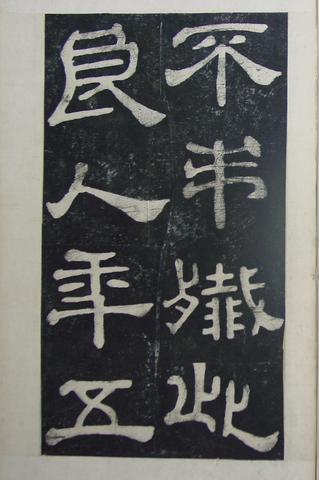 不弔殲此
良人年五